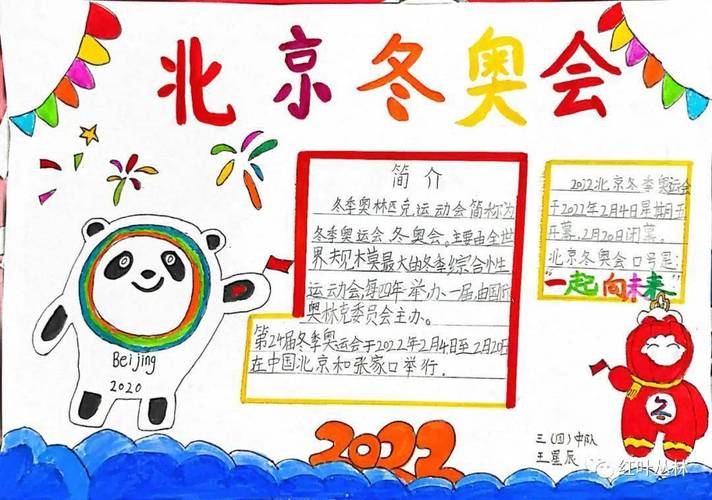 北京冬奥会
简介
冬季奥林匹克运动会简称为
冬季奥运会、冬奥会。主要由全世
界规模最大的冬季综合性
运动会,每四年举办一届由国际
奥林克委员会主办。
第24届冬季奥运会于2022年2月4日至2月20日
在中国北京和张家口举行.
2022北京冬季奥运会
于2022年2月4日星期五
开幕,2月20日闭幕。
北京冬奥会口号是:
"一起向未来"
Beijing
2020
2022
三(四)中队
王星辰
红叶丛林